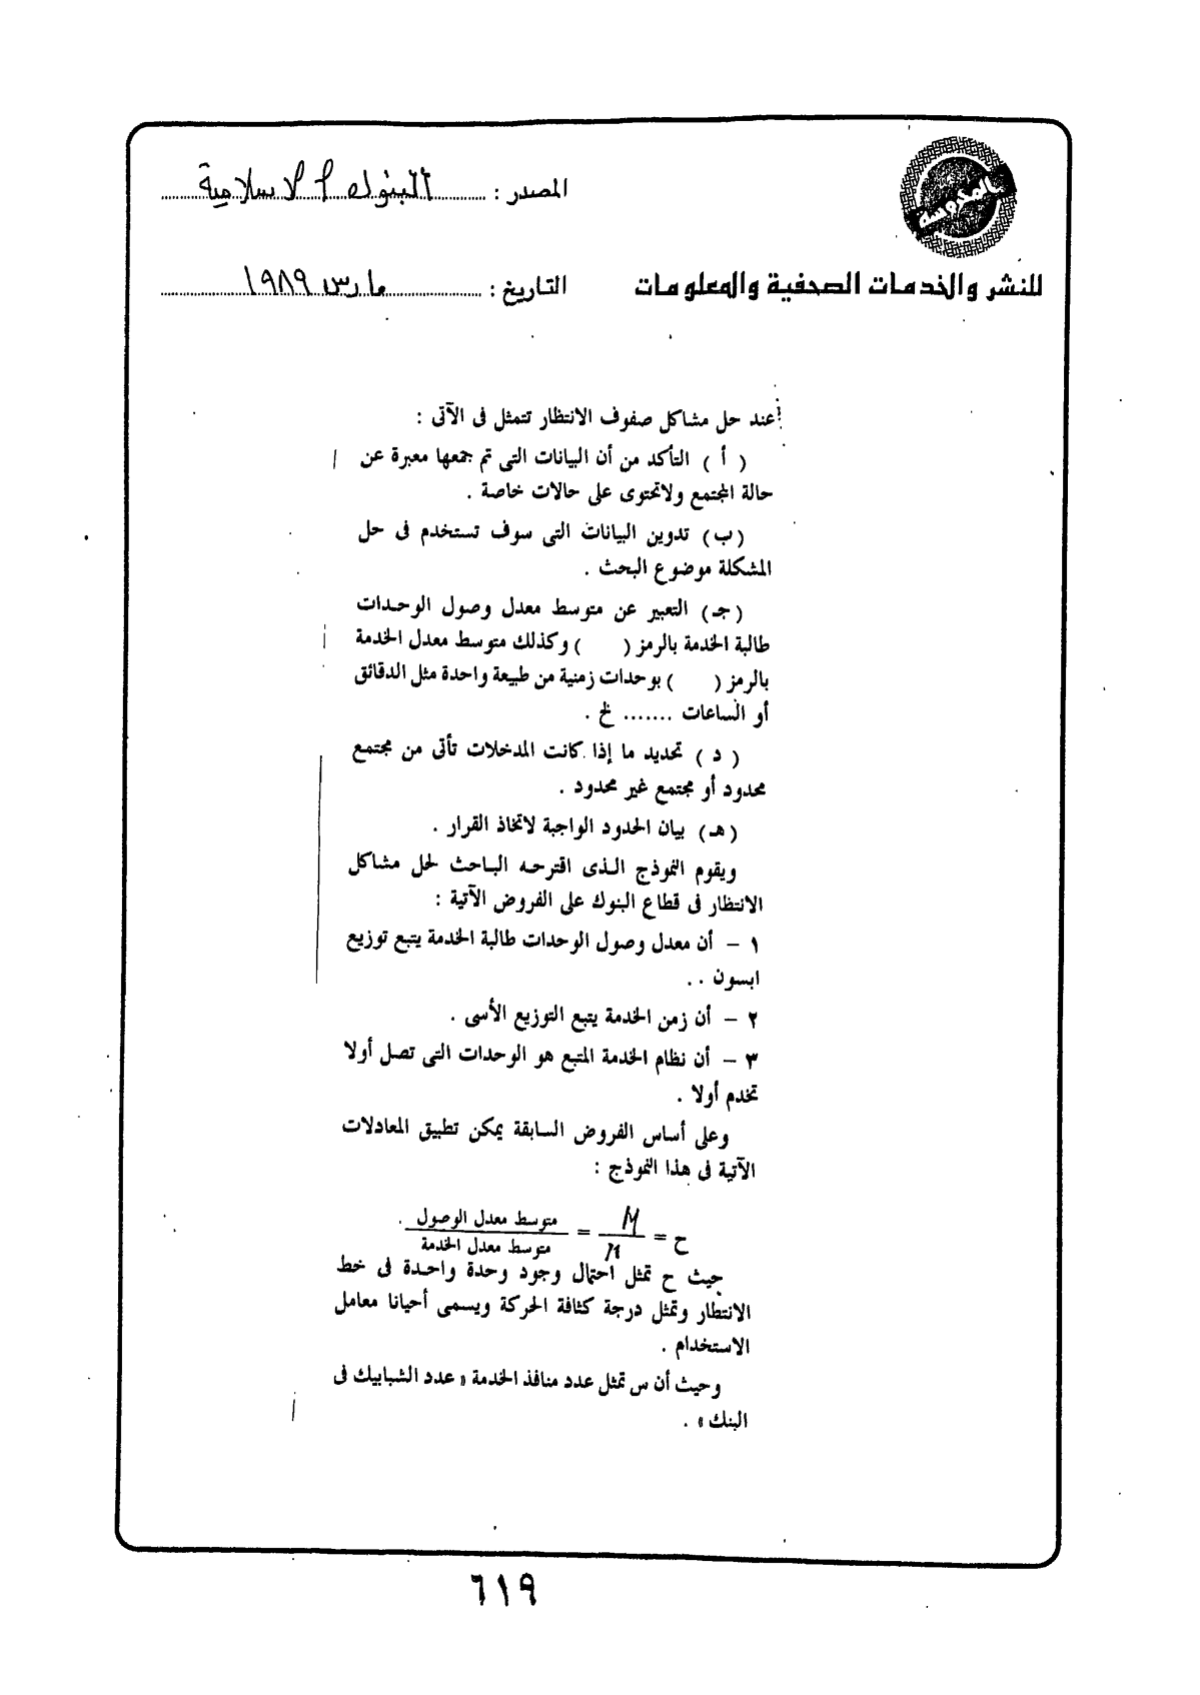 المحروسة
للنشر والخدمات الصحفية والمعلومات
المصدر : البنوك الاسلامية
التاريخ : مارس ١٩٨٩
عند حل مشاكل صفوف الانتظار تتمثل فى الآتى :
( أ ) التأكد من أن البيانات التى تم جمعها معبرة عن
حالة المجتمع ولاتحتوى على حالات خاصة .
(ب) تدوين البيانات التى سوف تستخدم فى حل
المشكلة موضوع البحث .
(جـ) التعبير عن متوسط معدل وصول الوحدات
طالبة الخدمة بالرمز (     ) وكذلك متوسط معدل الخدمة
بالرمز (     ) بوحدات زمنية من طبيعة واحدة مثل الدقائق
أو الساعات ....... لخ .
( د ) تحديد ما إذا كانت المدخلات تأتى من مجتمع
محدود أو مجتمع غير محدود .
(هـ) بيان الحدود الواجبة لاتخاذ القرار .
ويقوم النموذج الذى اقترحه الباحث لحل مشاكل
الانتظار فى قطاع البنوك على الفروض الآتية :
١ – أن معدل وصول الوحدات طالبة الخدمة يتبع توزيع
ابسون . .
٢ – أن زمن الخدمة يتبع التوزيع الأسى .
٣ – أن نظام الخدمة المتبع هو الوحدات التى تصل أولا
تخدم أولا .
وعلى أساس الفروض السابقة يمكن تطبيق المعادلات
الآتية فى هذا النموذج :
متوسط معدل الوصول
ح = = 
متوسط معدل الخدمة
حيث ح تمثل احتمال وجود وحدة واحدة فى خط
الانتظار وتمثل درجة كثافة الحركة ويسمى أحيانا معامل
الاستخدام .
وحيث أن س تمثل عدد منافذ الخدمة « عدد الشبابيك فى
البنك » .
٦١٩